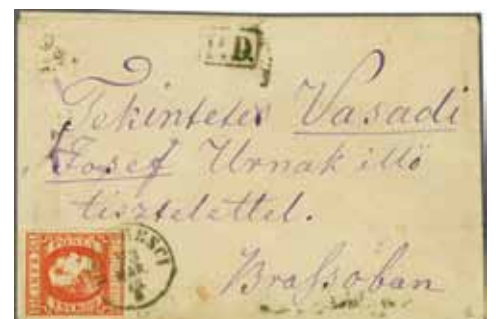 P.D.
Tekintetes Vasadi
Josef Urnak illő
tisztelettel.
Braſsóban
POSTA